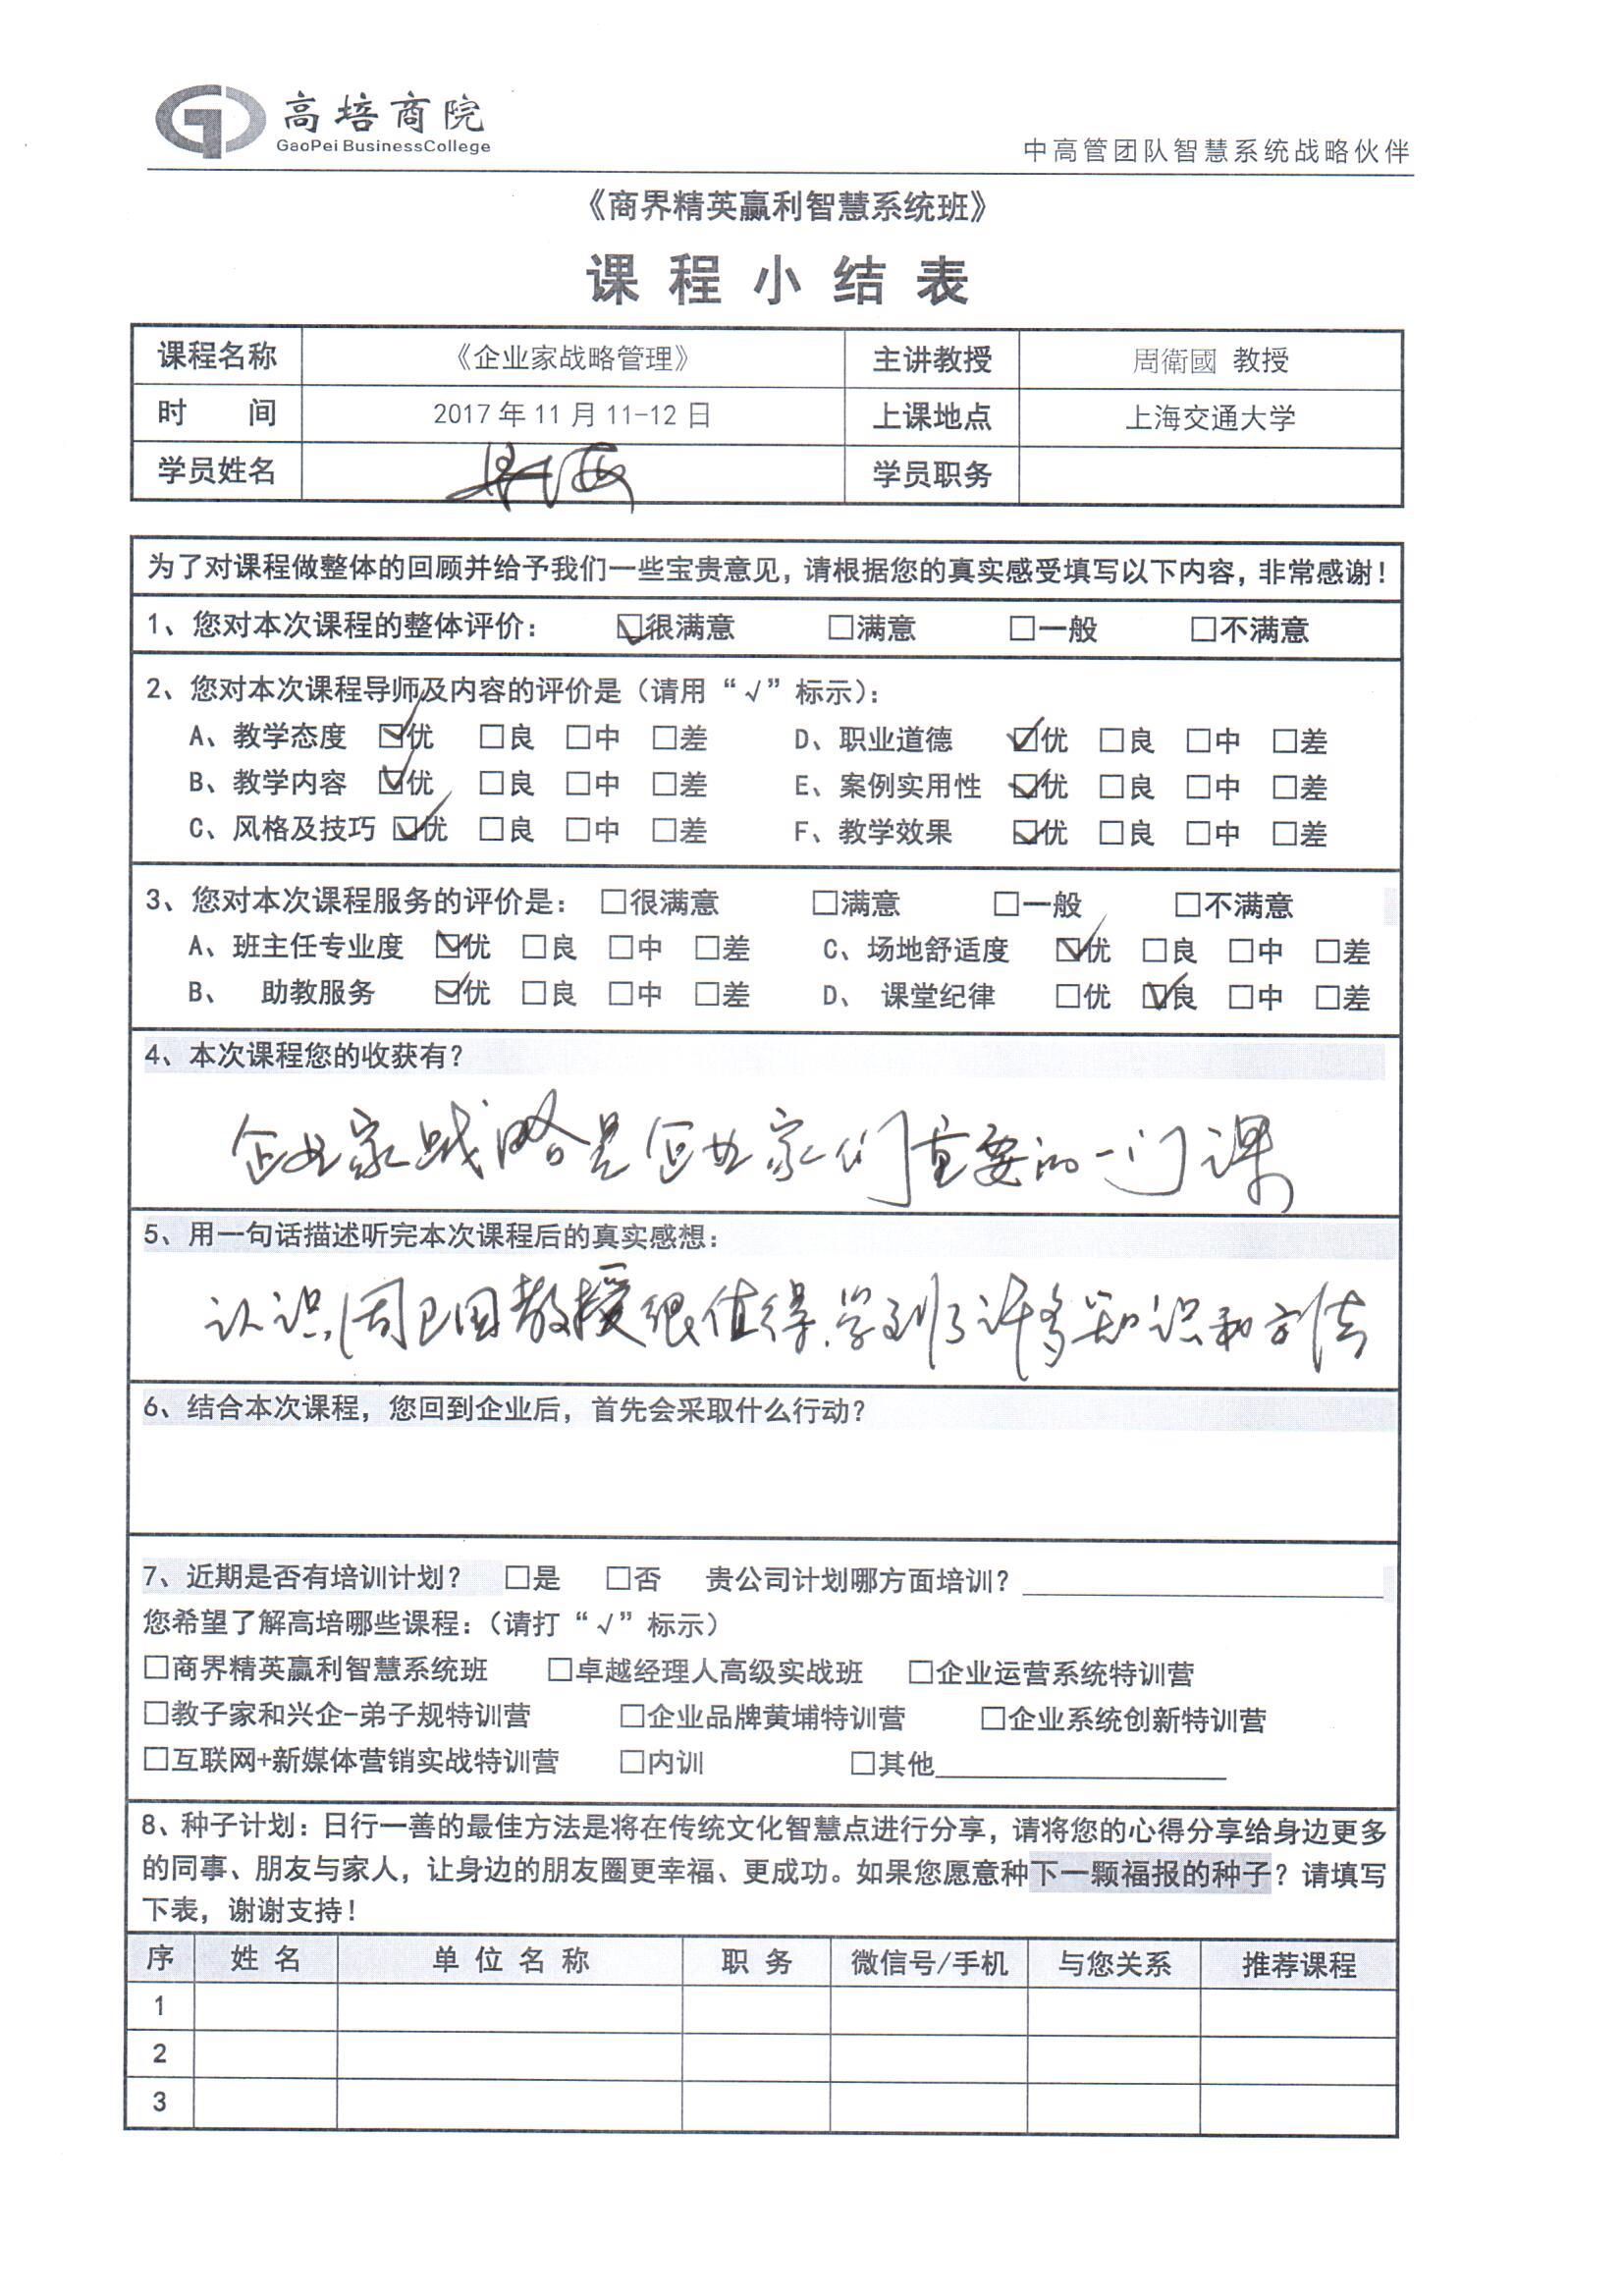 高培商院
GaoPei BusinessCollege
中高管团队智慧系统战略伙伴
《商界精英赢利智慧系统班》
课程小结表
课程名称 《企业家战略管理》 主讲教授 周衛國 教授
时 间 2017年11月11-12日 上课地点 上海交通大学
学员姓名 学员职务
为了对课程做整体的回顾并给予我们一些宝贵意见，请根据您的真实感受填写以下内容，非常感谢！
1、您对本次课程的整体评价： ☑很满意 □满意 □一般 □不满意
2、您对本次课程导师及内容的评价是（请用“√”标示）：
A、教学态度 ☑优 □良 □中 □差 D、职业道德 ☑优 □良 □中 □差
B、教学内容 ☑优 □良 □中 □差 E、案例实用性 ☑优 □良 □中 □差
C、风格及技巧 ☑优 □良 □中 □差 F、教学效果 ☑优 □良 □中 □差
3、您对本次课程服务的评价是： □很满意 □满意 □一般 □不满意
A、班主任专业度 ☑优 □良 □中 □差 C、场地舒适度 ☑优 □良 □中 □差
B、 助教服务 ☑优 □良 □中 □差 D、 课堂纪律 □优 ☑良 □中 □差
4、本次课程您的收获有？
企业家战略是企业家们重要的一门课
5、用一句话描述听完本次课程后的真实感想：
认识周卫国教授很值得.学到了许多知识和方法
6、结合本次课程，您回到企业后，首先会采取什么行动？
7、近期是否有培训计划？ □是 □否 贵公司计划哪方面培训？
您希望了解高培哪些课程：（请打“√”标示）
□商界精英赢利智慧系统班 □卓越经理人高级实战班 □企业运营系统特训营
□教子家和兴企-弟子规特训营 □企业品牌黄埔特训营 □企业系统创新特训营
□互联网+新媒体营销实战特训营 □内训 □其他
8、种子计划：日行一善的最佳方法是将在传统文化智慧点进行分享，请将您的心得分享给身边更多
的同事、朋友与家人，让身边的朋友圈更幸福、更成功。如果您愿意种下一颗福报的种子？请填写
下表，谢谢支持！
序 姓名 单位名称 职务 微信号/手机 与您关系 推荐课程
1
2
3